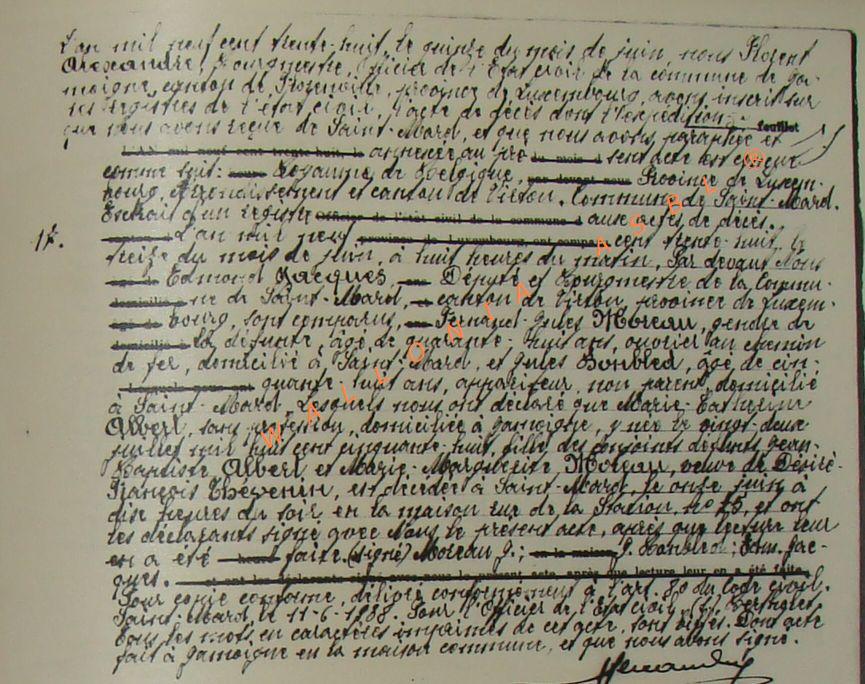 L'an mil neuf cent trente-huit, le quinze du mois de juin, nous Florent
Alexandre, Bourgmestre, Officier de l'Etat civil de la commune de Ja-
moigne, canton de Florenville, province de Luxembourg, avons inscrit sur
les registres de l'état civil, l'acte de décès dont l'expédition feuillet
que nous avons reçue de Saint-Mard, et que nous avons paraphée et
L'AN mil neuf cent trente huit, le annexée au pré du mois d sent acte est
comme suit: nous Royaume de Belgique, par devant nous Province de Luxem-
bourg, Arrondissement et canton de Virton. Commune de Saint-Mard.
Extrait d'un registre Officier de l'état civil de la commune d aux actes de décès.
17. L'an mil neuf province de Luxembourg, ont comparu cent trente-huit, le
treize du mois de juin, à huit heures du matin, Par devant Nous
âgé de Edmond Jacques, Député et Bourgmestre de la Commu-
domicilié à ne de Saint-Mard, et canton de Virton, province de Luxem-
âgé de bourg, sont comparus, Fernand-Jules Moreau, gendre de
domicilié à la défunte, âgé de quarante-huit ans, ouvrier au chemin
de fer, domicilié à Saint-Mard, et Jules Bonbled, âgé de cin-
Lesquels nous ont quante-huit ans, appariteur, non parent, domicilié
à Saint-Mard, Lesquels nous ont déclaré que Marie-Catherine
Albert, sans profession, domiciliée à Jamoigne, y née le vingt-deux
juillet mil huit cent cinquante-huit, fille des conjoints défunts Jean-
Baptiste Albert et Marie-Marguerite Moreau, veuve de Désiré-
François Thévenin, est décédée à Saint-Mard, le onze juin à
dix heures du soir en la maison rue de la Station, n° 75, et ont
les déclarants signé avec Nous le présent acte, après que lecture leur
en a été heure faite (signé) Moreau J.; en la maison J. Bonbled; Edm. Jac-
ques. et ont les déclarants signé avec nous le présent acte après que lecture leur en a été faite.
Pour copie conforme, délivrée conformément à l'art. 80 du Code civil.
Saint-Mard, le 11-6-1938. Pour l'Officier de l'Etat civil,
Tous les mots, en caractères imprimés de cet acte, sont biffés. Dont acte
fait à Jamoigne en la maison commune, et que nous avons signé.
WALLONIA ASBL ©